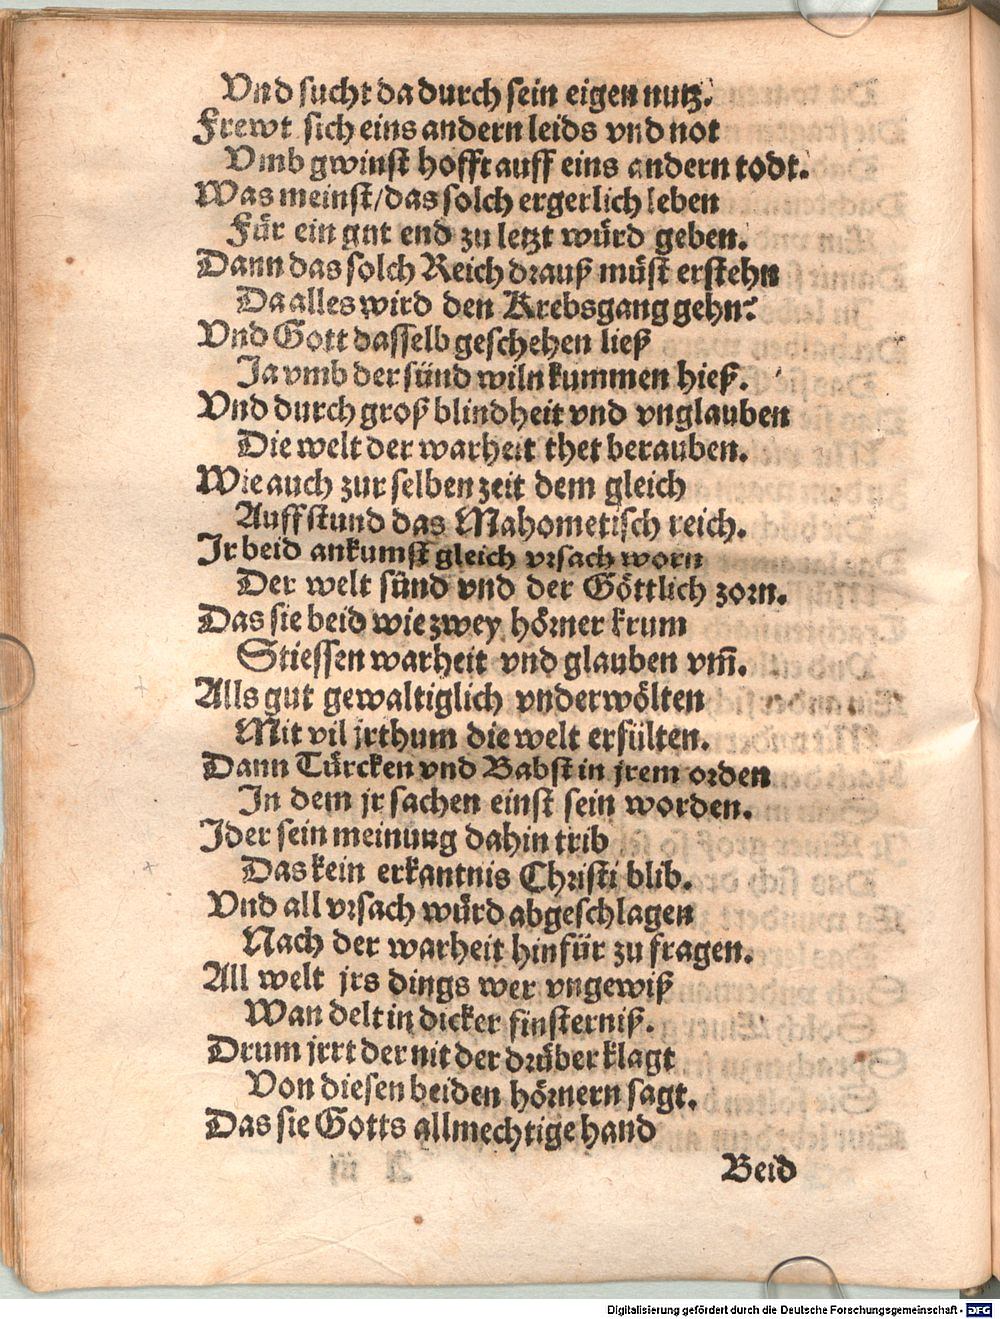 Vnd sucht da durch sein eigen nutz.
Frewt sich eins andern leids vnd not
Vmb gwinst hofft auff eins andern todt.
Was meinst/das solch ergerlich leben
Für ein gut end zu letzt würd geben.
Dann das solch Reich drauß müst erstehn
Da alles wird den Krebsgang gehn.
Vnd Gott dasselb geschehen ließ
Ja vmb der sünd wiln kummen hieß.
Vnd durch groß blindheit vnd vnglauben
Die welt der warheit thet berauben.
Wie auch zur selben zeit dem gleich
Auff stund das Mahometisch reich.
Ir beid ankumst gleich vrsach worn
Der welt sünd vnd der Göttlich zorn.
Das sie beid wie zwey hörner krum
Stiessen warheit vnd glauben vm̃.
Alls gut gewaltiglich vnderwölten
Mit vil jrthum die welt erfülten.
Dann Türcken vnd Babst in jrem orden
In dem jr sachen einst sein worden.
Ider sein meinung dahin trib
Das kein erkantnis Christi blib.
Vnd all vrsach würd abgeschlagen
Nach der warheit hinfür zu fragen.
All welt jrs dings wer vngewiß
Wan delt in dicker finsterniß.
Drum jrrt der nit der drüber klagt
Von diesen beiden hörnern sagt.
Das sie Gotts allmechtige hand
Beid
Digitalisierung gefördert durch die Deutsche Forschungsgemeinschaft - DFG